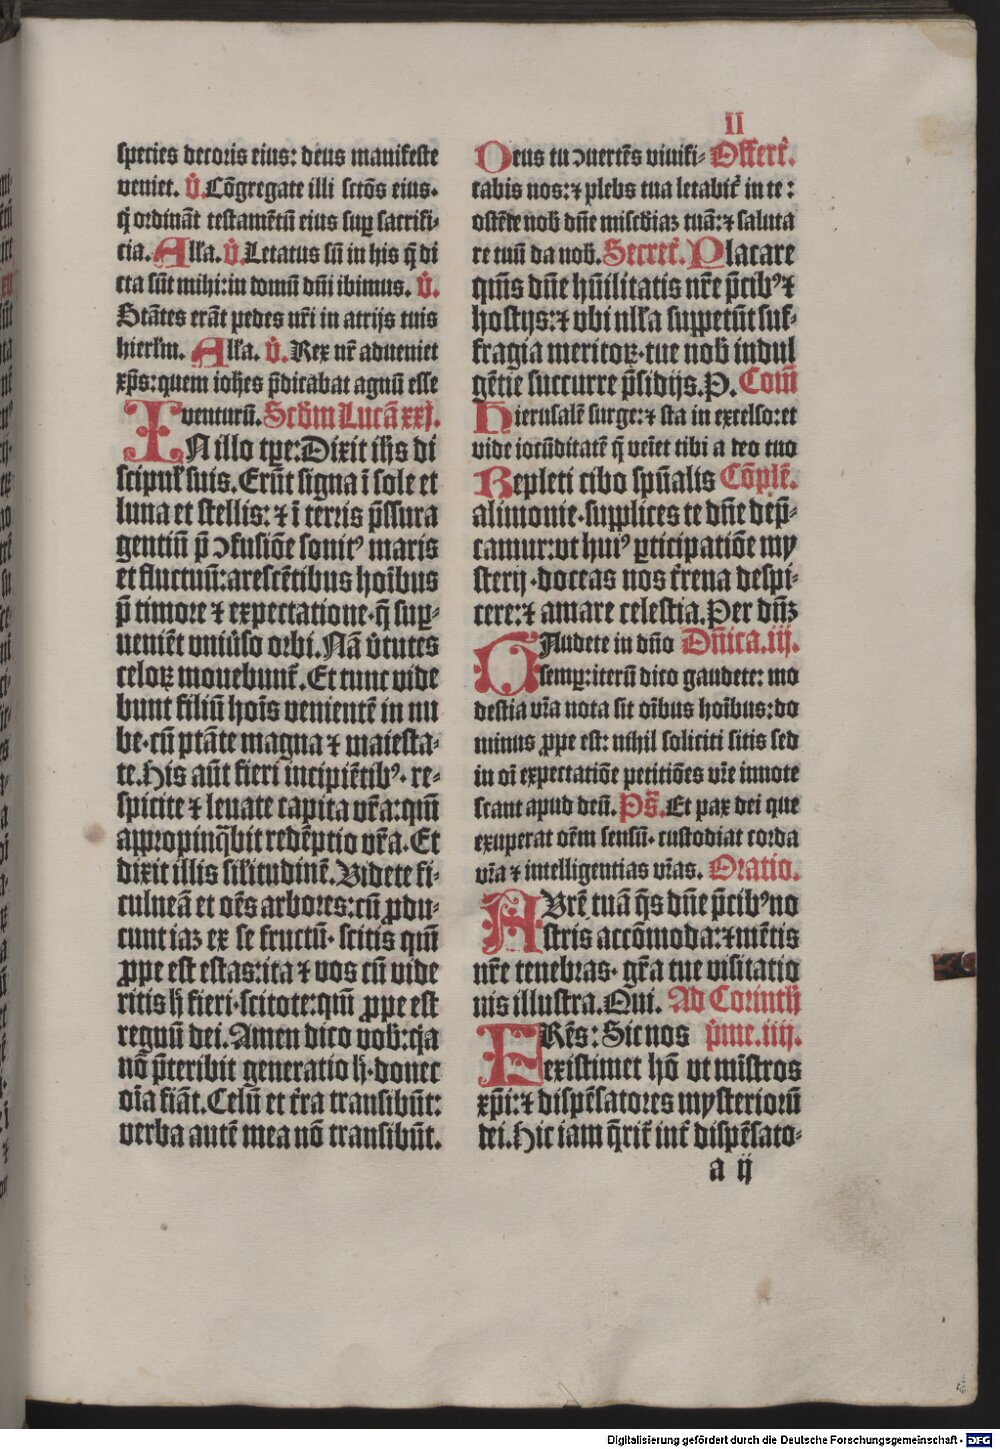 II
species decoris eius: deus manifeste
veniet. V̉. Cōgregate illi sctōs eius.
q̇ ordināt testamētū eius suꝑ sacrifi-
cia. Alła. V̉. Letatus sū in his q̄ di
cta sūt mihi: in domū dn̄i ibimus. V̉.
Stātes erāt pedes nr̄i in atrijs tuis
hierłm. Alła. V̉. Rex nr̄ adueniet
xp̄s: quem iohēs p̄dicabat agnū esse
venturū. Scđm Lucā xxj.
IN illo tp̄e: Dixit ih̄s di
scipuł suis. Erūt signa ī sole et
luna et stellis: ⁊ ī terris p̄ssura
gentiū p̄ ↄfusiōe sonitꝰ maris
et fluctuū: arescētibus hoībus
p̄ timore ⁊ expectatione. q̄ suꝑ-
ueniēt vniu̓so orbi. Nā v̓tutes
celoꝝ mouebunt᷒. Et tunc vide
bunt filiū hoīs venientē in nu
be. cū ptāte magna ⁊ maiesta-
te. His aūt fieri incipiētibꝰ. re-
spicite ⁊ leuate capita vr̄a: qm̄
appropinq̄bit redēptio vr̄a. Et
dixit illis siłitudinē. Videte fi-
culneā et oēs arbores: cū ꝓdu-
cunt iaꝫ ex se fructū. scitis qm̄
ꝓpe est estas: ita ⁊ vos cū vide
ritis h̄ fieri. scitote: qm̄ ꝓpe est
regnū dei. Amen dico vob̄: q̇a
nō p̄teribit generatio h̄. donec
oīa fiāt. Celū et t̓ra transibūt:
verba autē mea nō transibūt.
Deus tu ↄuertēs viuifi- Offert᷒.
cabis nos: ⁊ plebs tua letabit᷒ in te:
ostēde nob̄ dn̄e miscđiaꝫ tuā: ⁊ saluta
re tuū da nob̄. Secret᷒. Placare
qm̄s dn̄e hūilitatis nr̄e p̄cibꝰ ⁊
hostijs: ⁊ vbi nłła suppetūt suf-
fragia meritoꝝ. tue nob̄ indul
gētie succurre p̄sidijs. P. Com̄
Hierusalē surge: ⁊ sta in excelso: et
vide iocūditatē q̄ veīet tibi a deo tuo
Repleti cibo spūalis Cōplē.
alimonie. supplices te dn̄e dep̄-
camur: vt huiꝰ ꝑticipatiōe my
sterij. doceas nos t̓rena despi-
cere: ⁊ amare celestia. Per dn̄ꝫ
GAudete in dn̄o Dn̄ica. iij.
semꝑ: iterū dico gaudete: mo
destia vr̄a nota sit oībus hoībus: do
minus ꝓpe est: nihil soliciti sitis sed
in oī expectatiōe petitiōes vr̄e innote
scant apud deū. Ps̄. Et pax dei que
exuperat oēm sensū. custodiat corda
vr̄a ⁊ intelligentias vr̄as. Oratio.
AVrē tuā q̄s dn̄e p̄cibꝰ no
stris accōmoda: ⁊ mētis
nr̄e tenebras. gr̄a tue visitatio
nis illustra. Qui. Ad Corinth̄
FRēs: Sic nos p̓me. iiij.
existimet hō vt mīstros
xp̄i: ⁊ dispēsatores mysteriorū
dei. Hic iam q̄rit᷒ int᷒ dispēsato-
a ij
Digitalisierung gefördert durch die Deutsche Forschungsgemeinschaft - DFG